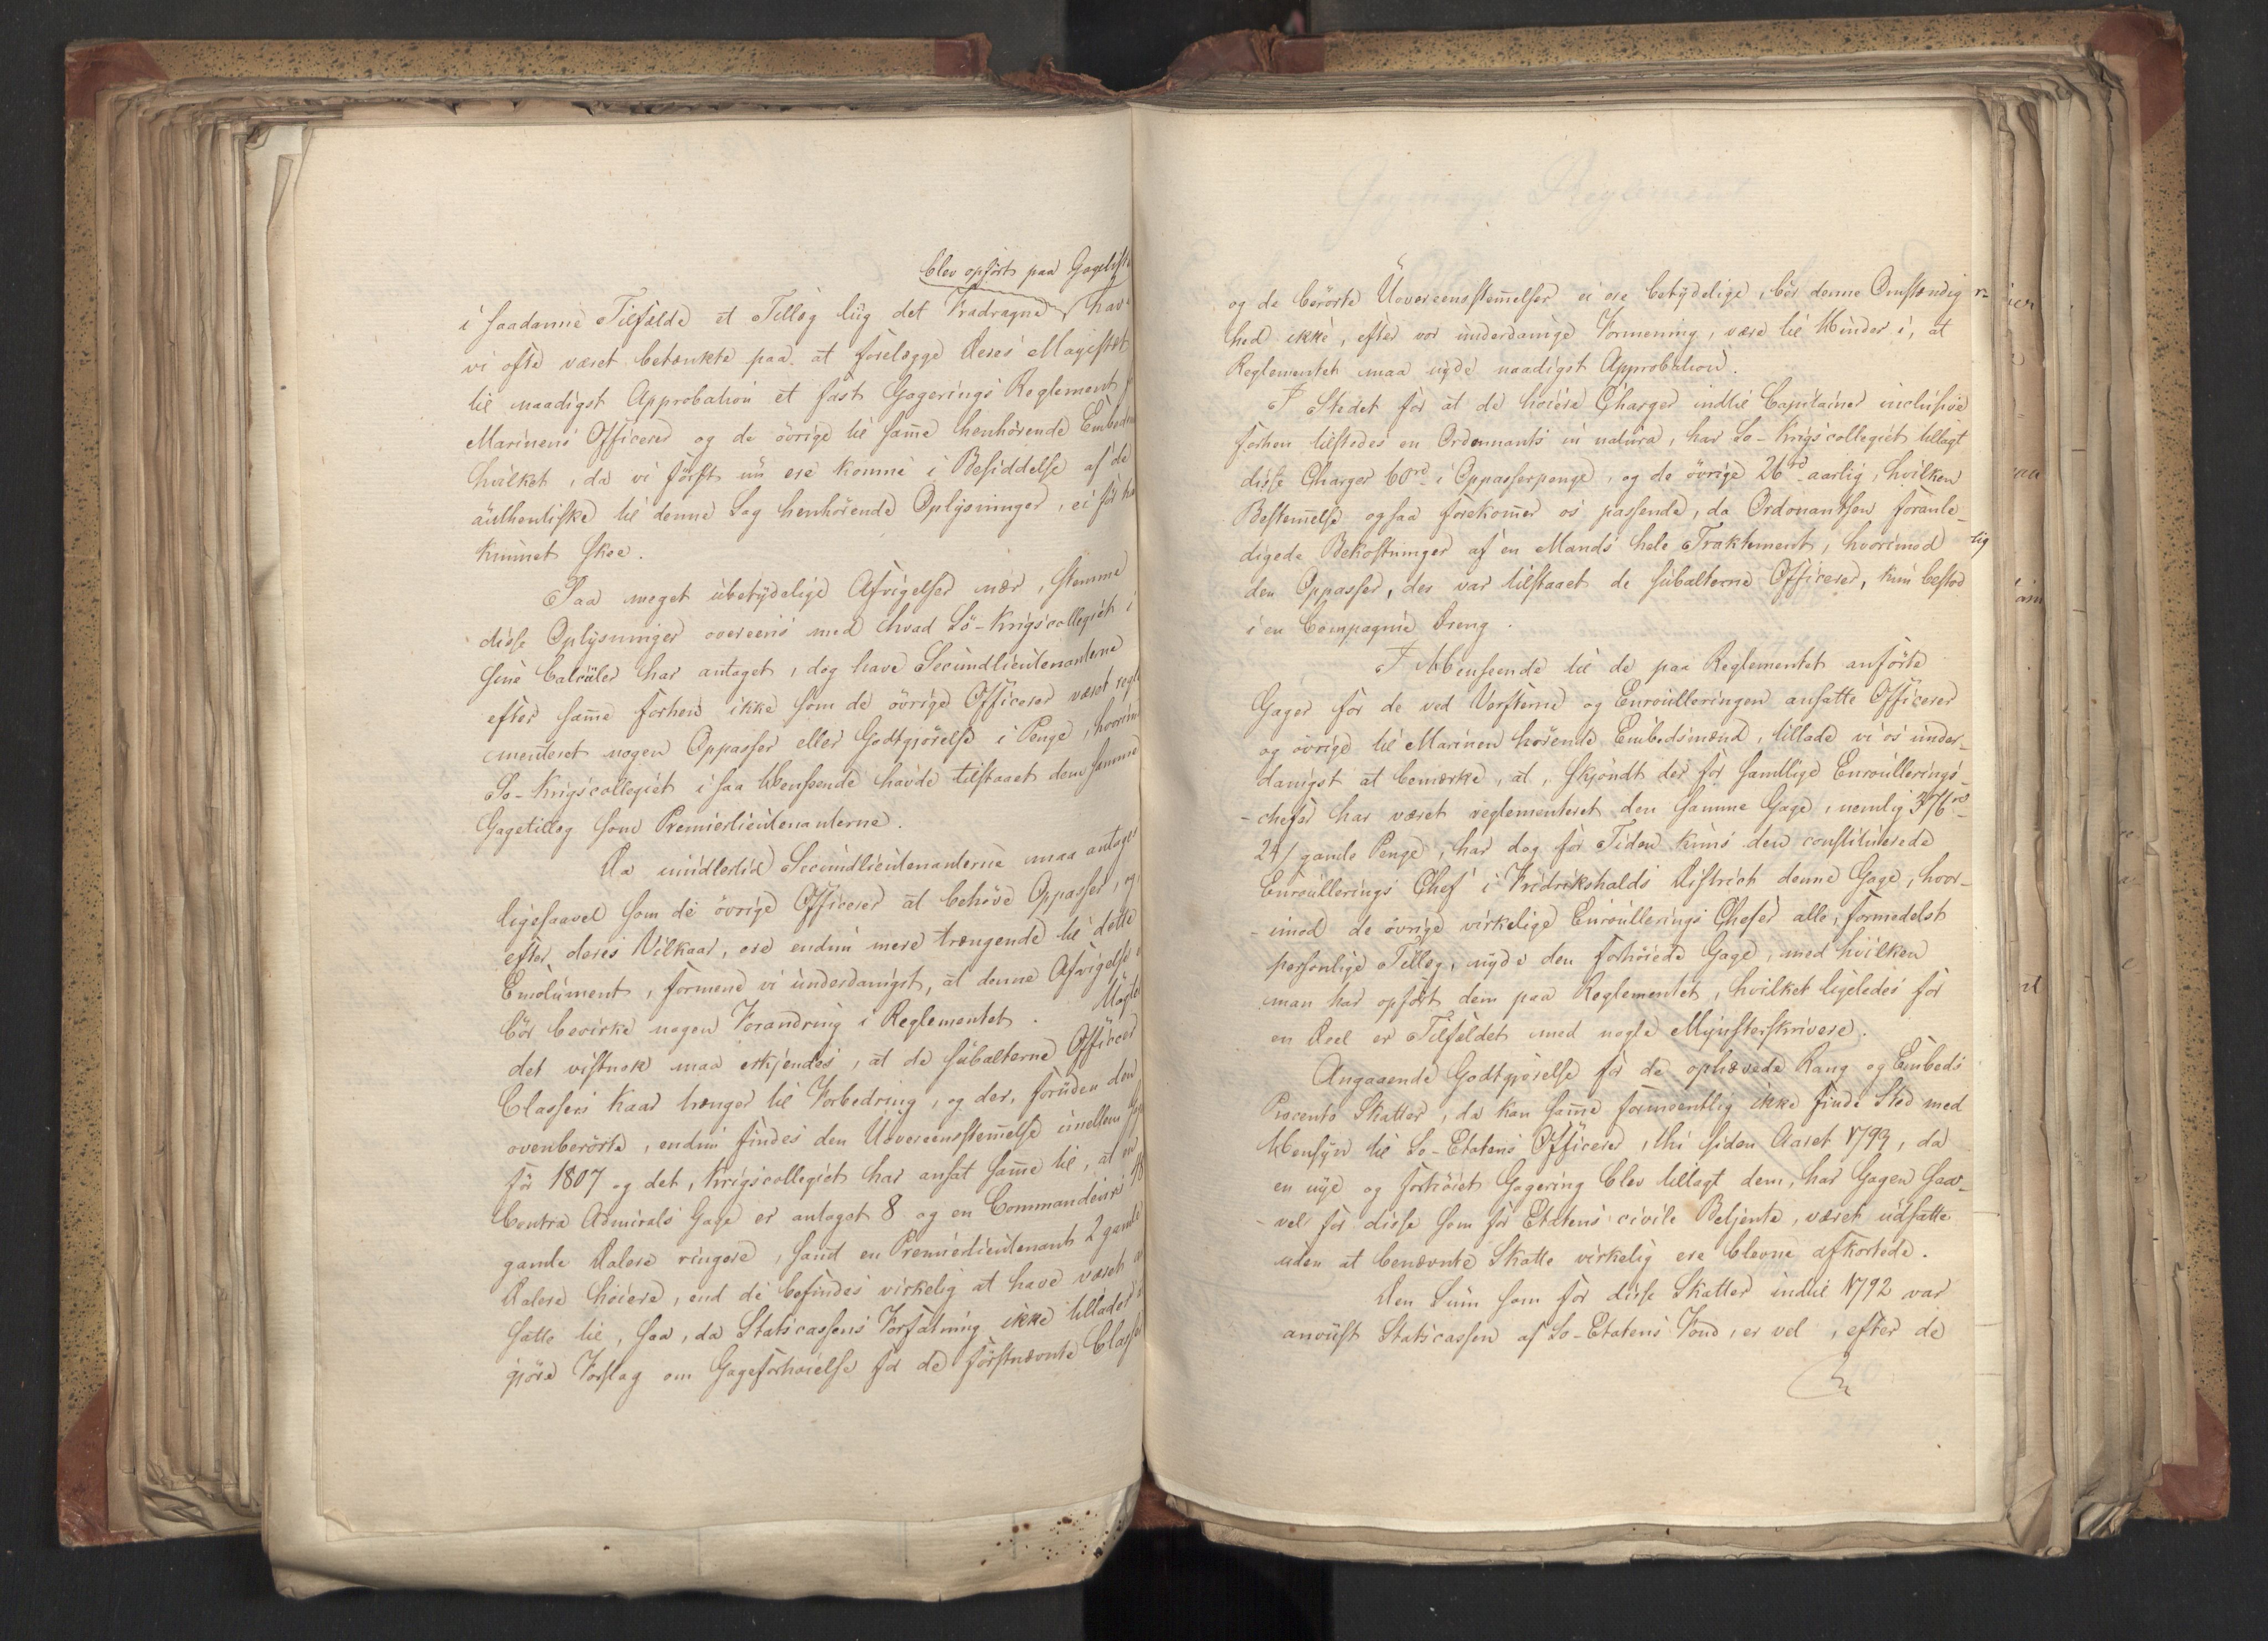 blev opført paa Gagelist
i saadanne Tilfælde et Tillæg liig det Fradragne have
vi ofte været betænkte paa at forelægge Deres Majestæt
til naadigst Approbation et fast Gagerings Reglement
Marinens Officerer og de övrige til sam̄e henhörende Embedsm
hvilket, da vi först nu ere komne i Besiddelse af de
authentiske til denne Sag henhörende Oplysninger, ei för
kunnet skee.
Paa meget ubetydelige Afvigelser nær, stemme
disse Oplysninger overeens med hvad Sö-Krigscollegiet i
sine Calculer har antaget, dog have Secundlieutenanterne
efter sam̄e forhen ikke som de övrige Officerer været regle
menteret nogen Oppasser eller Godtgjörelse i Penge, hvorim
Sö-Krigscollegiet i saa Henseende havde tilstaaet dem samme
Gagetillæg som Premierlieutenanterne.
Da imidlertid Secundlieutenanterne maa antages
ligesaavel som de övrige Officerer at behöve Oppasser, og
efter deres Vilkaar, ere endnu mere trængende til dette
Emolument, formene vi underdanigst, at denne Afvigelse
bör bevirke nogen Forandring i Reglementet.
det vistnok maa erkjendes, at de subalterne Officeer
Classers Kaar trænger til Forbedring, og der, foruden den
ovenberörte, endnu findes den Uovereensstem̄else imellem
för 1807 og det, Krigscollegiet har ansat sam̄e til, at en
Contra Admirals Gage er antaget 8 og en Commandeurs
gamle Dalere ringere, samt en Premierlieutenants 2 gamle
Dalere höiere, end de befindes virkelig at have været
satte til, saa, da Statscassens Forfatning ikke tillader
gjöre Forslag om Gageforhöielse for de förstnævnte Class
og de berörte Uovereensstem̄elser ei ere betydelige, bör denne Omstændig
hed ikke, efter vor underdanige Formening, være til Hinder i, at
Reglementet maa nyde naadigst Approbation.
I Stedet for at de höiere Charger indtil Capitainer inclusive
forhen tilstedes en Ordonnants in natura, har Sö-Krigscollegiet tillagt
disse Charger 60rd i Oppasserpenge, og de övrige 26rd aarlig, hvilken
Bestem̄else ogsaa forekom̄er os passende, da Ordonantsen foranle-
digede Bekostninger af en Mands hele Traktement, hvorimod
den Oppasser, der var tilstaaet de subalterne Officerer, kun bestod
i en Compagnie Dreng.
I Henseende til de paa Reglementet anförte
Gager for de ved Verfterne og Enroulleringen ansatte Officerer
og övrige til Marinen hörende Embedsmænd, tillade vi os under-
danigst at bemærke, at, skjöndt der for samtlige Enroullerings-
-chefer har været reglementeret den samme Gage, nemlig 376rd
24/ gamle Penge, har dog for Tiden kuns den constituerede
Enroullerings Chef i Fredrikshalds District denne Gage, hvor-
-imod de övrige virkelige Enroullerings Chefer alle, formedelst
personlige Tillæg, nyde den forhöiede Gage, med hvilken
man har opfört dem paa Reglementet, hvilket ligeledes for
en Deel er Tilfældet med nogle Mynsterskrivere.
Angaaende Godtgjörelse for de ophævede Rang og Embeds
Procento Skatter, da kan sam̄e formeentlig ikke finde Sted med
Hensyn til Sö-Etatens Officerer, thi siden Aaret 1793, da
en nye og forhöiet Gagering blev tillagt dem, har Gagen saa-
-vel for disse som for Etatens civile Betjente, været udsatte
uden at benævnte Skatte virkelig ere blevne afkortede.
Den Sum som for disse Skatter indtil 1792 var
anviist Statscassen af Sö-Etatens Fond, er vel, efter de